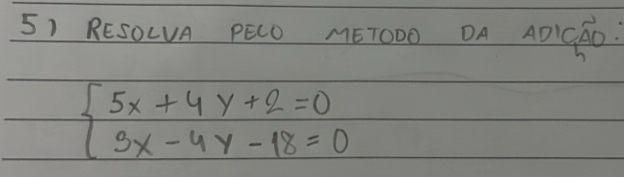 5) RESOLVA PELO METODO DA ADIÇÃO:
5x + 4y + 2 = 0
3x - 4y - 18 = 0